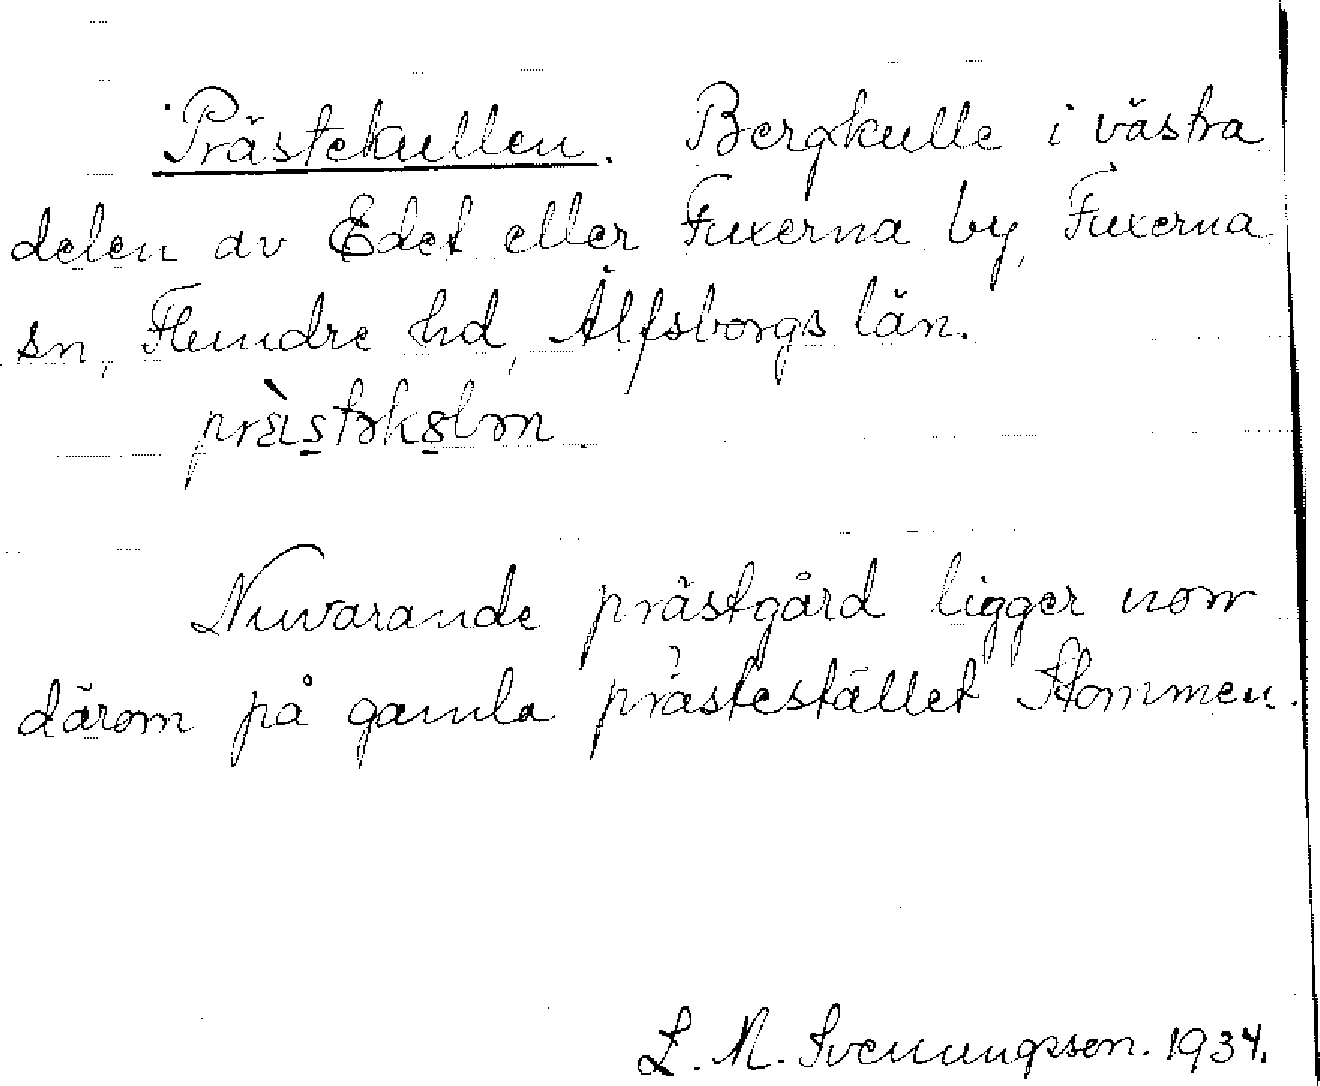 Prästekullen. Bergkulle i västra
delen av Edet eller Fuxerna by, Fuxerna
sn, Flundre hd, Älfsborgs län.
Nuvarande prästgård ligger norr
därom på gamla prästestället Stommen.
L. N. Svenungsson. 1934.